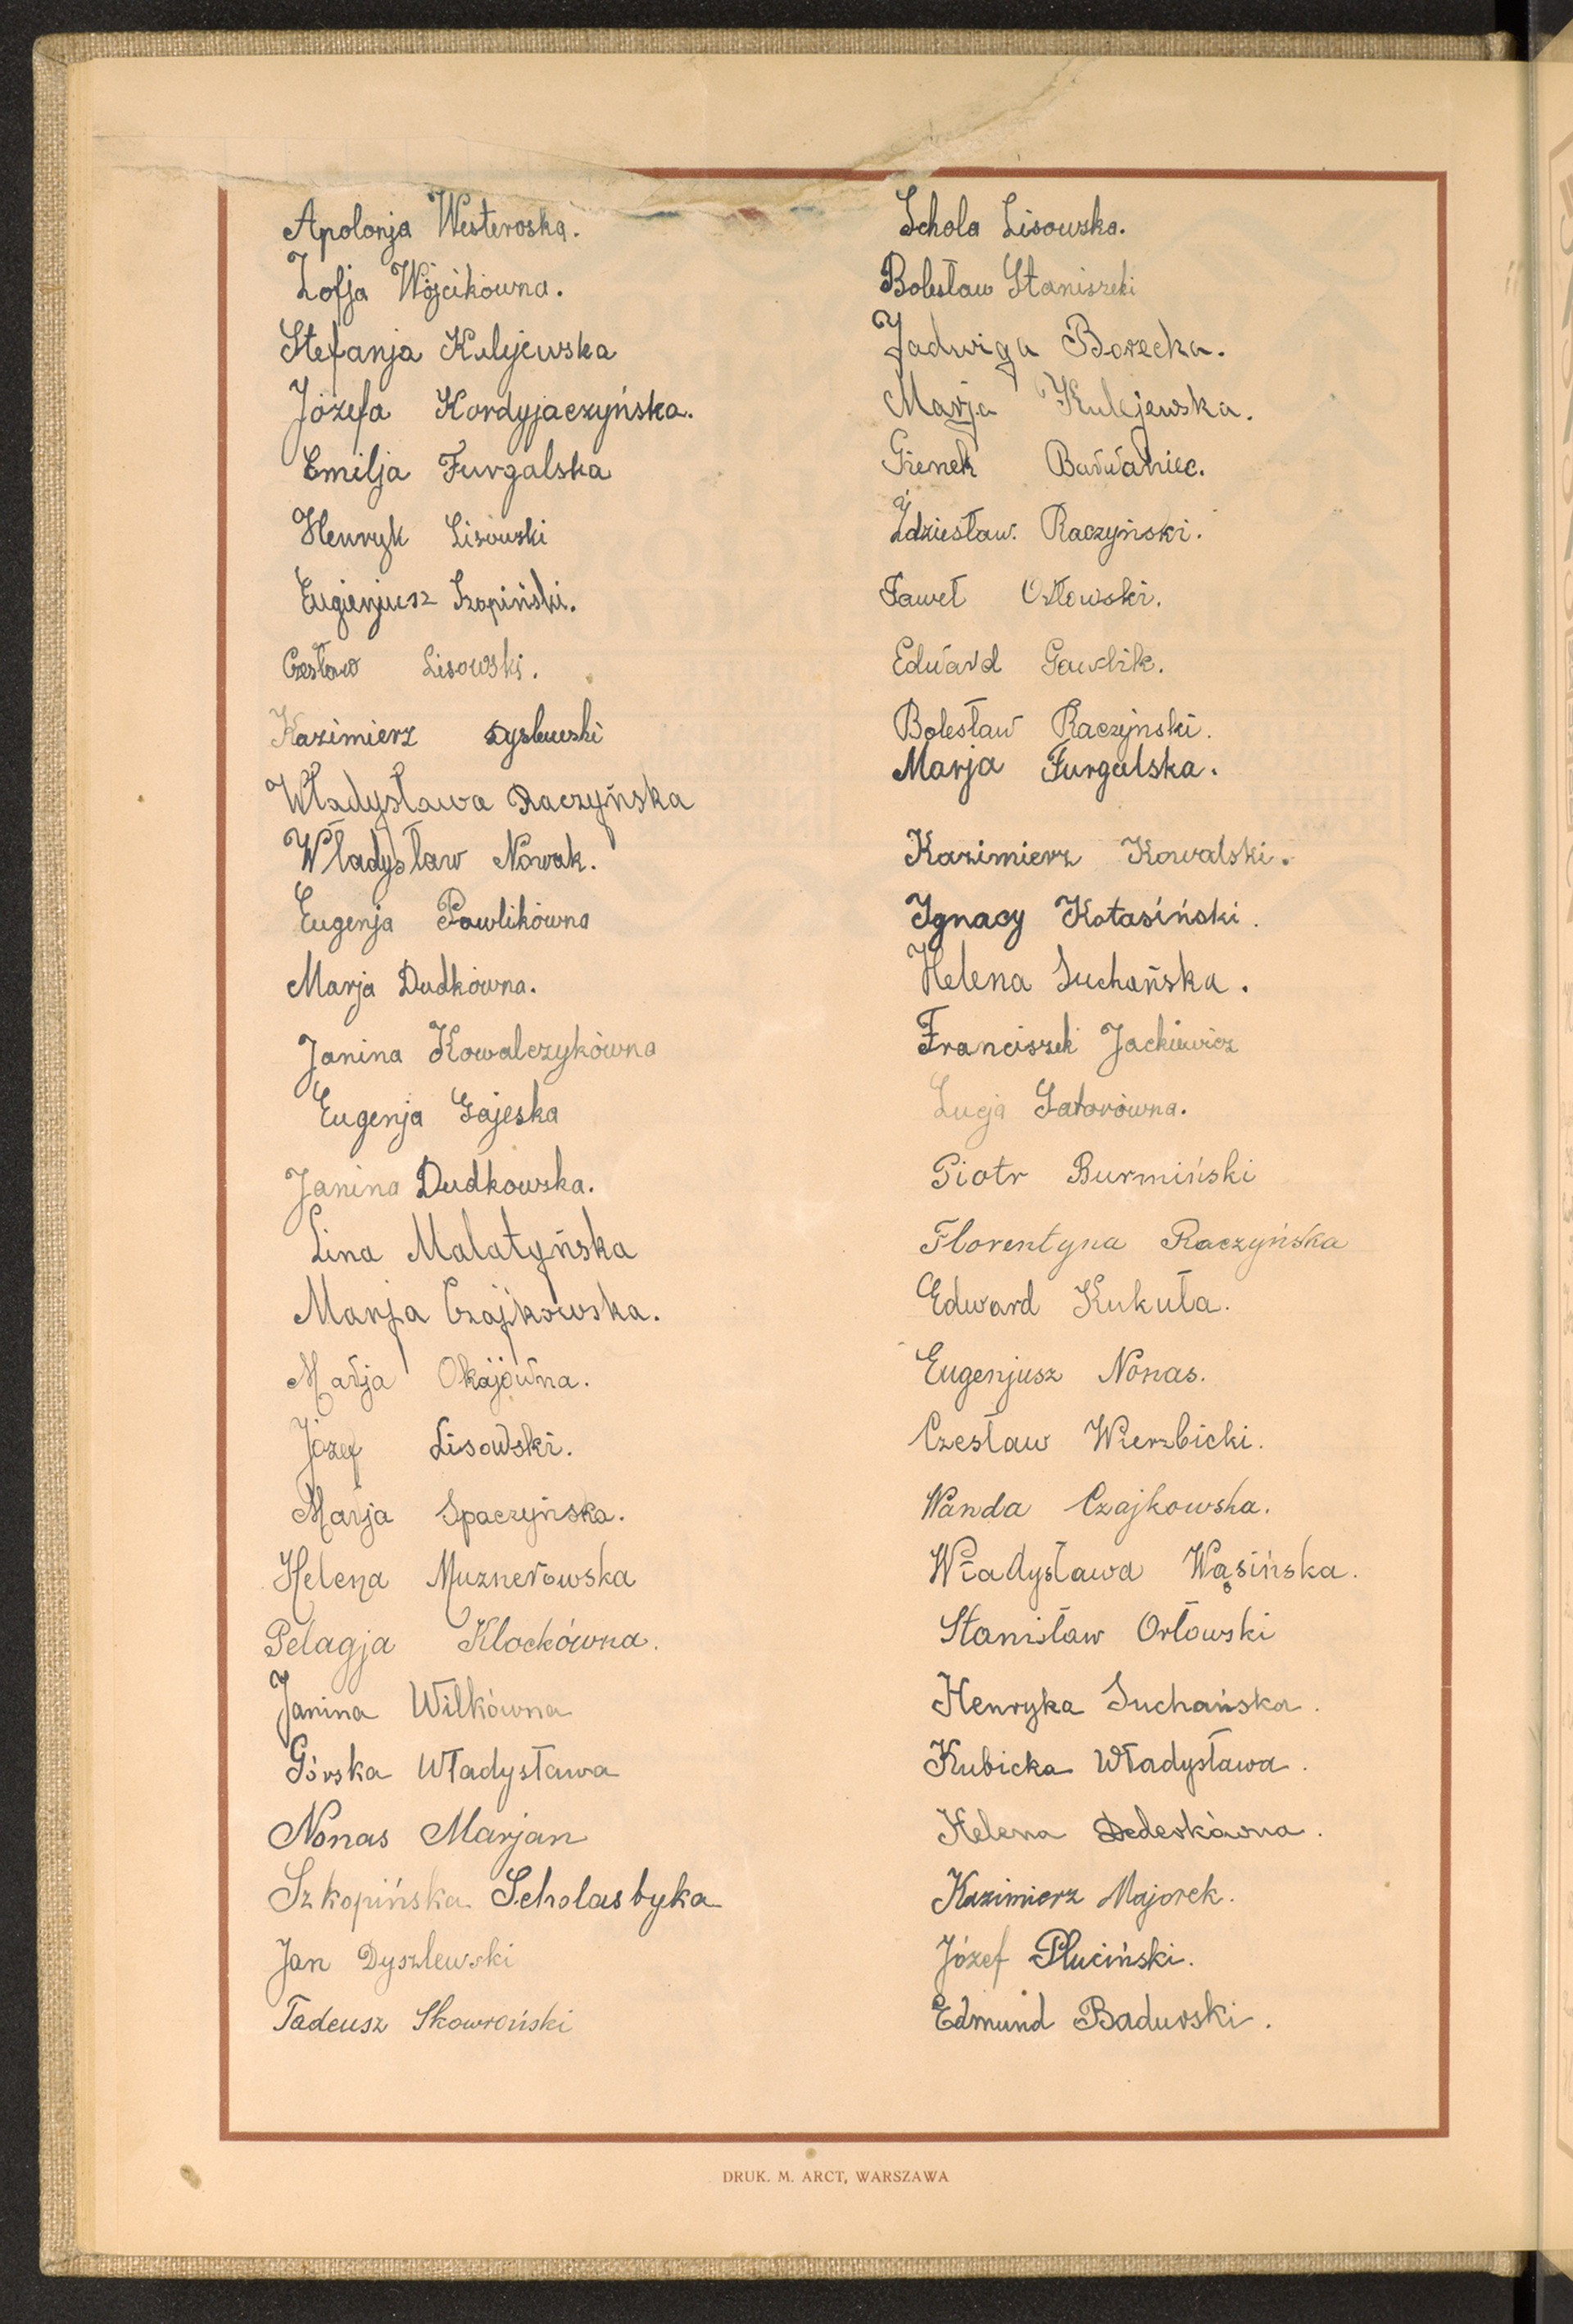 Apolonja Westeroska.
Zofja Wójcikówna.
Stefanja Kulyjewska
Józefa Kordyjaczyńska.
Emilja Furgalska
Henryk Lisowski
Eugienjusz Szopiński.
Czesław Lisowski.
Kazimierz Dyslewski
Władysława Raczyńska
Władysław Nowak.
Eugenja Pawlikówna
Marja Dudkówna.
Janina Kowalczykówna
Eugenja Gajeska
Janina Dudkowska.
Lina Malatyńska
Marja Czajkowska.
Marja Okajówna.
Józef Lisowski.
Marja Spaczyńska.
Helena Muznerowska
Pelagja Klockówna.
Janina Wilkówna
Górska Władysława
Nonas Marjan
Szkopińska Scholastyka
Jan Dyszlewski
Tadeusz Skowroński
Schola Lisowska.
Bolesław Staniszeki
Jadwiga Borecka.
Marja Kulejewska.
Gienek
Zdziesław. Raczyński.
Paweł Orłowski.
Edward Gawlik.
Bolesław Raczyński.
Marja Furgalska.
Kazimierz Kowalski.
Ignacy Kotasiński.
Helena Suchańska.
Franciszek Jackiewicz
Łucja Satorówna.
Piotr Burmiński
Florentyna Raczyńska
Edward Kukuła.
Eugenjusz Nonas.
Czesław Wierzbicki.
Wanda Czajkowska.
Władysława Wąsińska.
Stanisław Orłowski
Henryka Suchańska.
Kubicka Władysława.
Helena Dederkówna.
Kazimierz Majorek.
Józef Pluciński.
Edmund Badurski.
DRUK. M. ARCT, WARSZAWA